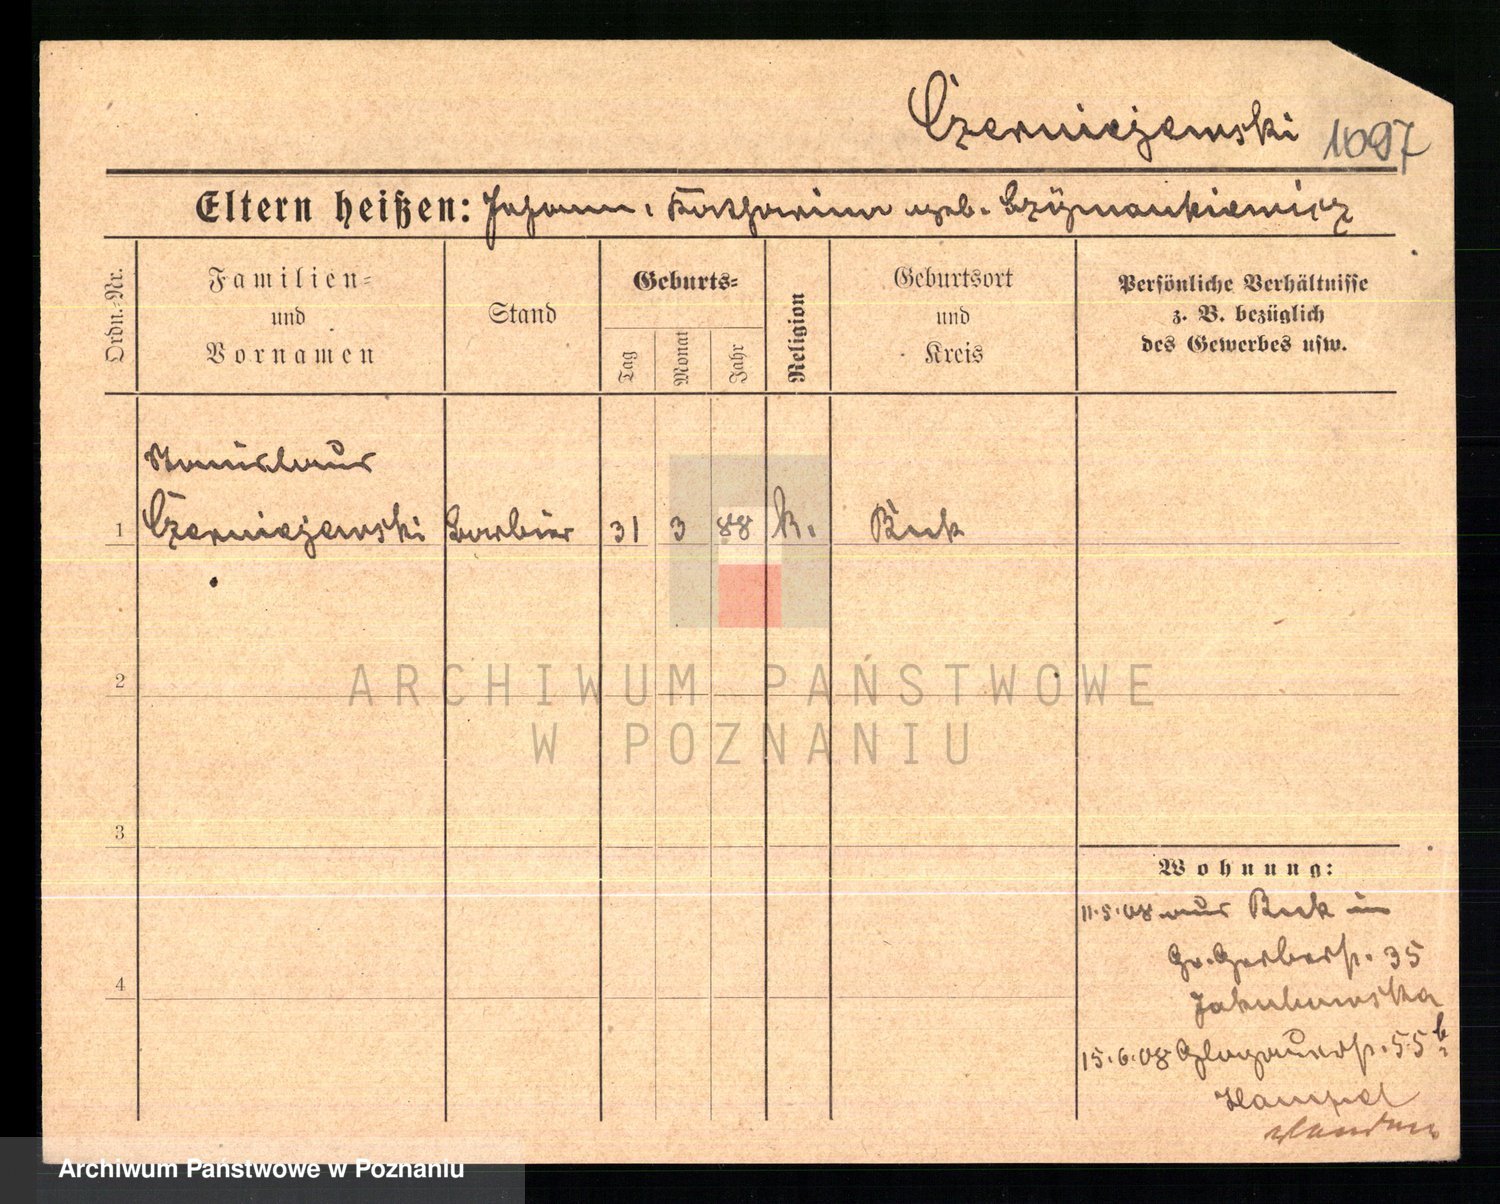 Czerniejewski 1097
Eltern heißen: Johann, Katharina geb. Szÿmankiewicz
Ordn.-Nr.
Familien-
und
Vornamen
Stand
Geburts-
Tag
Monat
Jahr
Religion
Geburtsort
und
Kreis
Persönliche Verhältnisse
z. B. bezüglich
des Gewerbes usw.
Stanislaus
1 Czerniejewski Barbier 31 3 88 k. Buk
2
3
4
Wohnung:
11.5.08 aus Buk in
Gr. Gerberstr. 35
Jakubowska
15.6.08 Glogauerstr. 55b
Hampel
ARCHIWUM PAŃSTWOWE
W POZNANIU
Archiwum Państwowe w Poznaniu